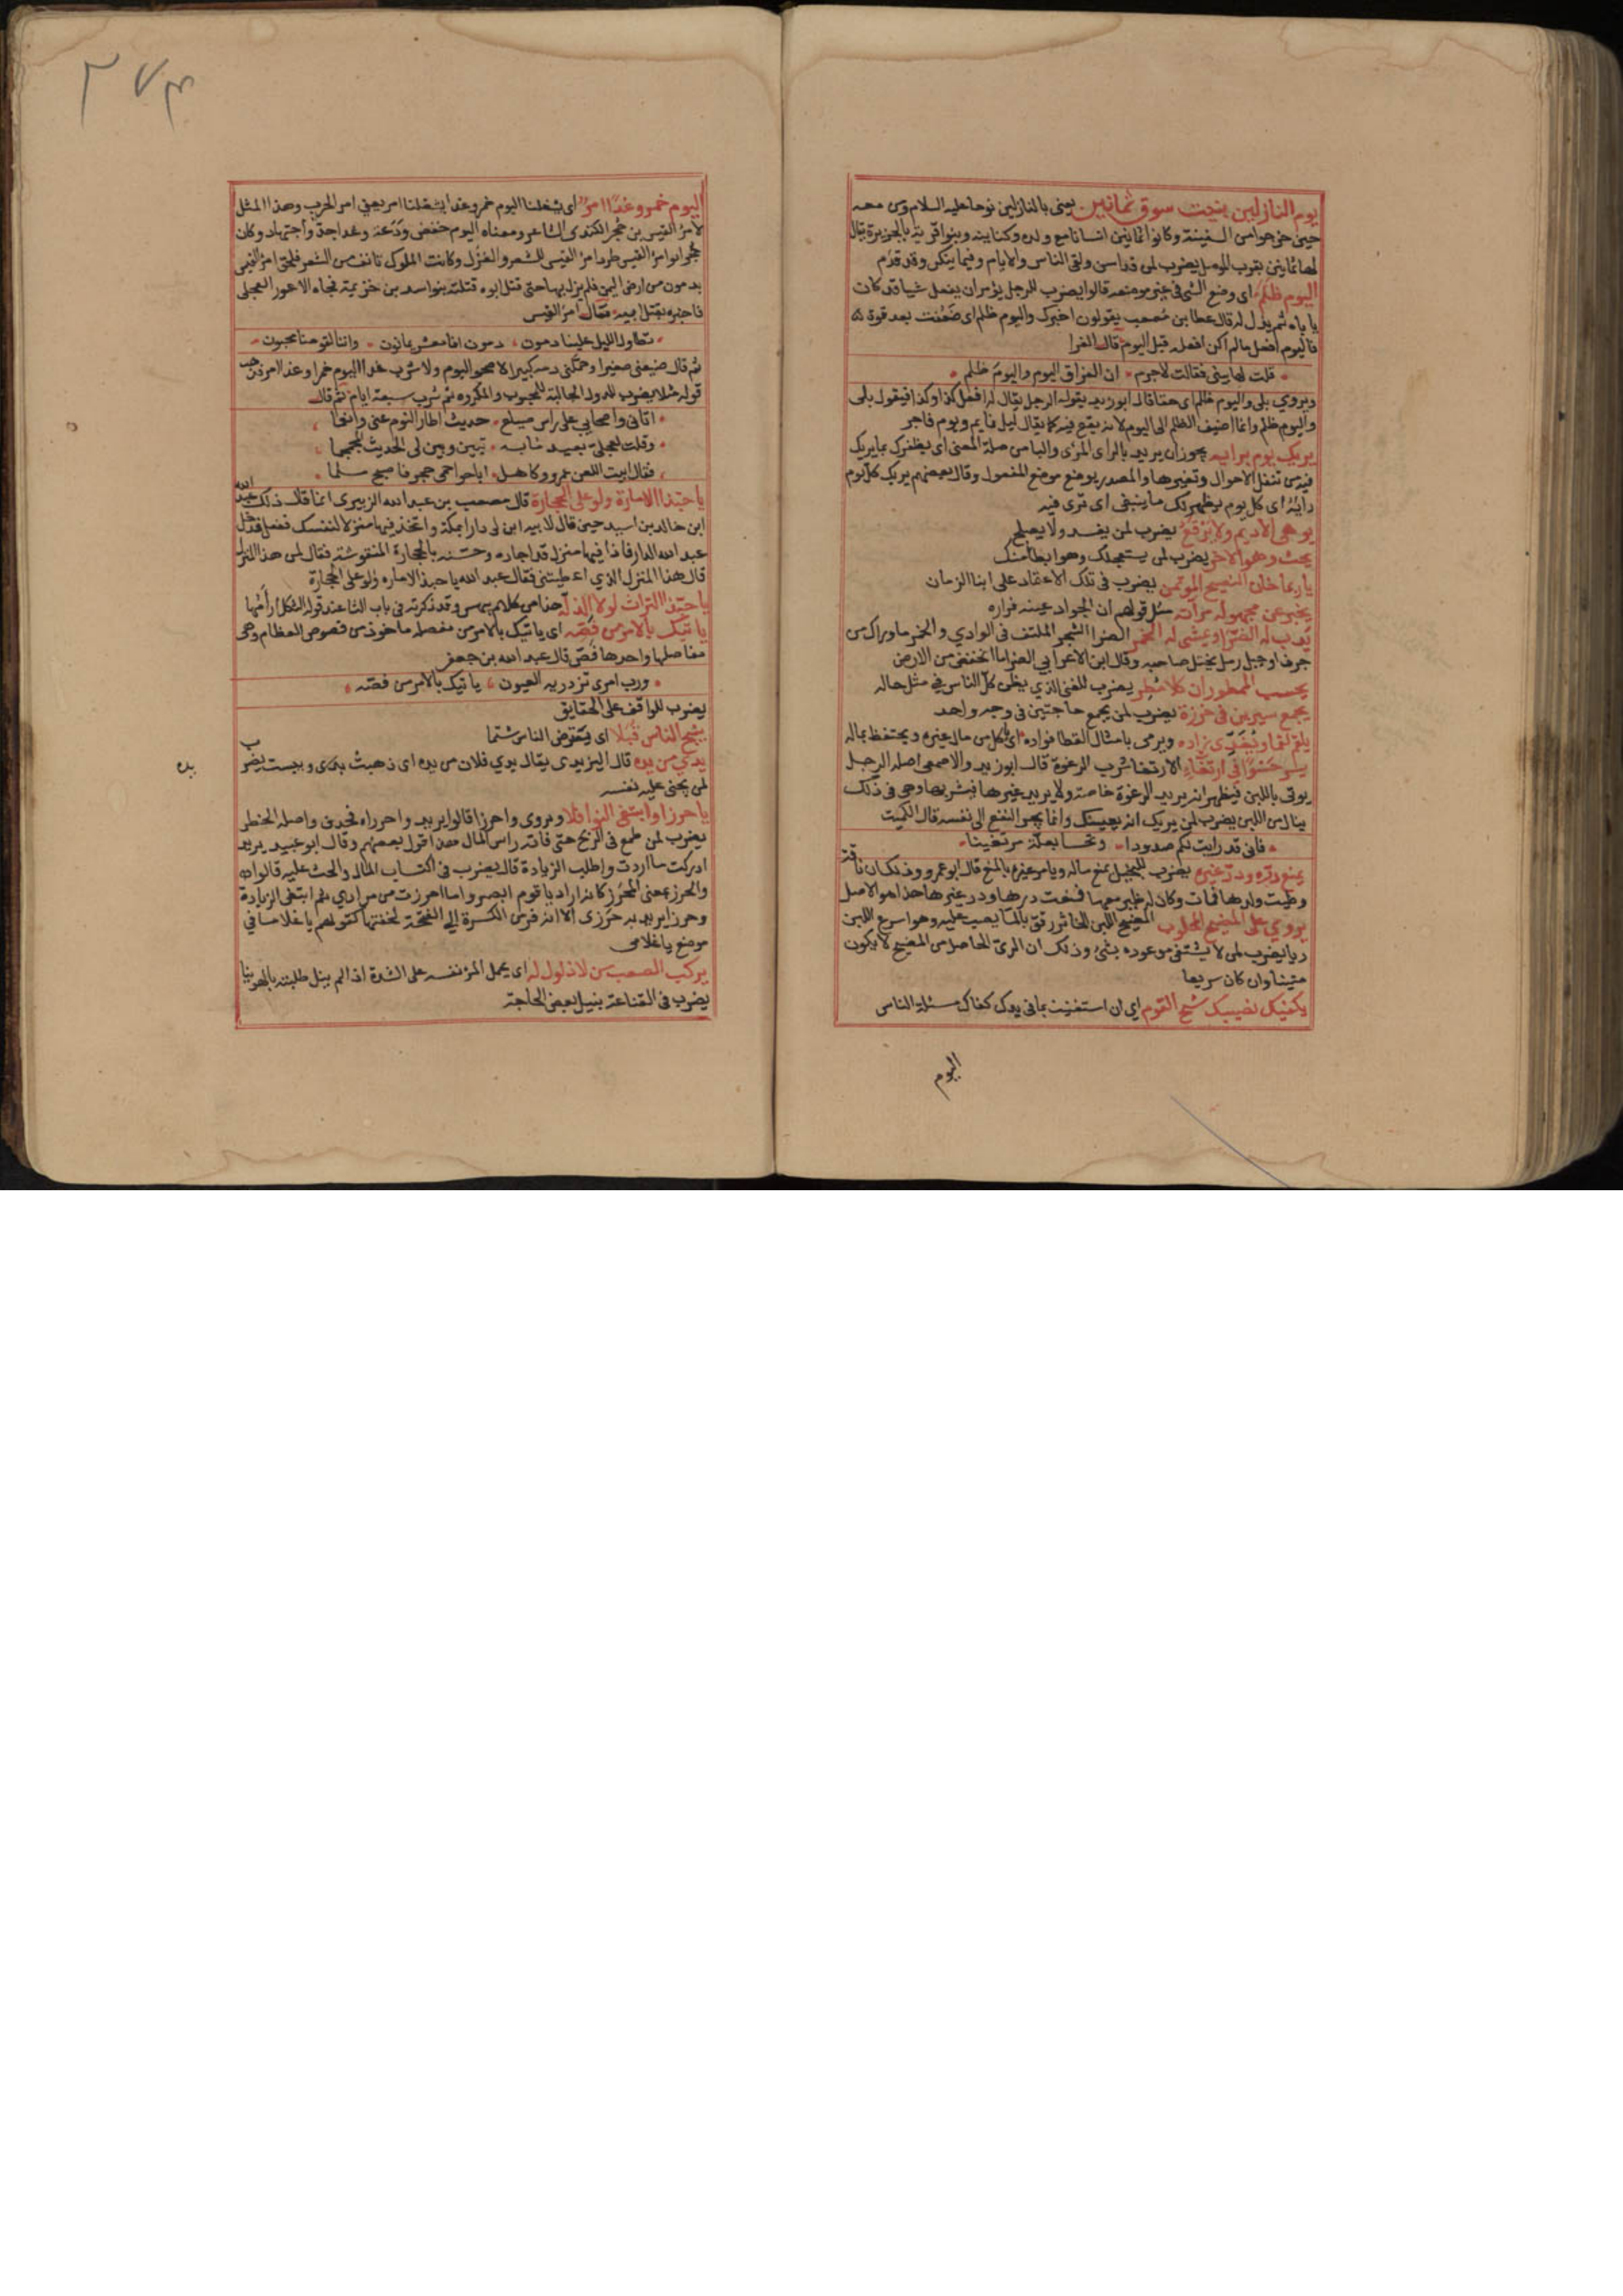 يوم النازلين بنيت سوق ثمانين يعني بالنازلين نوحا عليه السلام ومن معه
حين خرجوا من السفينة وكانوا ثمانين انسانا مع ولده وكناينه وبنوا قرية بالجزيرة يقال
لها ثمانين بقرب الموصل يضرب لمن قد اسن ولقى الناس والايام وفيما يذكر وقد قدم
اليوم ظلم اى وضع الشى فى غير موضعه قالوا يضرب للرجل يؤمر ان يفعل شيا قد كان
ياباه ثم يذل له قال عطا بن مصعب يقولون اخبرك واليوم ظلم اى ضعفت بعد قوة
فاليوم افعل مالم اكن افعله قبل اليوم قال الفرا
قلت لها بيني فقالت لاجرم ان الفراق اليوم واليوم ظلم
ويروي بلى واليوم ظلم اى حقا قال ابو زيد يقوله الرجل يقال له افعل كذا وكذا فيقول بلى
واليوم ظلم وانما اضيف الظلم الى اليوم لانه يقع فيه كما يقال ليل نايم ويوم فاجر
يريك يوم برايه يجوز ان يريد بالراى المرئى والبا من صلة المعنى اى يظفرك بما يريك
فيه من تنقل الاحوال وتغيرها والمصدر يوضع موضع المفعول وقال بعضهم يريك كل يوم
رايه اى كل يوم يظهر لك ما ينبغى اى ترى فيه
يوهى الاديم ولا يرقع يضرب لمن يفسد ولا يصلح
يحث وهو الاخر يضرب لمن يستعجلك وهو ابطا منك
يا ربما خان النصيح الموتمن يضرب فى ترك الاعتماد على ابنا الزمان
يخبر عن مجهوله مرآته مثل قولهم ان الجواد عينه فراره
يدب له الضرا ويمشى له الخمر الضرا الشجر الملتف فى الوادي والخمر ما واراك من
جرف او جبل رمل يختل صاحبه وقال ابن الاعرابي الضرا ما انخفض من الارض
يحسب الممطور ان كلا مطر يضرب للغنى الذي يظن كل الناس في مثل حاله
يجمع سيرين فى خرزة يضرب لمن يجمع حاجتين فى وجه واحد
يلقم لقما ويفدى زاده ويرمى بامثال القطا فواده اى ياكل من مال غيره ويحتفظ بماله
يسر حسوا في ارتغاء الارتغا شرب الرغوة قال ابو زيد والاصمعى اصله الرجل
يوتى باللبن فيظهر انه يريد الرغوة خاصة ولا يريد غيرها فيشربها وهى فى ذلك
ينال من اللبن يضرب لمن يريك انه يعينك وانما يجر النفع الى نفسه قال الكميت
فانى قد رايت لكم صدودا وتحسا بعلة مرتغينا
يمنع دره ودر غيره يضرب للبخيل يمنع ماله ويامر غيره بالمنع قال ابو عمرو وذلك ان ناقة
وطيت ولدها فمات وكان له ظير معها فمنعت درها ودر غيرها هذا هو الاصل
يروى على الضيح المحلوب الضيح اللبن الخاثر رقق بالما يصب عليه وهو اسرع اللبن
ريا يضرب لمن لا يشتفى موعوده بشئ وذلك ان الرى الحاصل من الضيح لا يكون
متينا وان كان سريعا
يكفيك نصيبك شح القوم اي ان استغنيت بما فى يدك كفاك مسئلة الناس
اليوم
٣٧٣
اليوم خمر وغدا امر اى يشغلنا اليوم خمر وغدا يشغلنا امر يعنى امر الحرب وهذا المثل
لامرئ القيس بن حجر الكندى الشاعر ومعناه اليوم خفض ودعة وغدا جد واجتهاد وكان
حجر ابو امرئ القيس طرد امرأ القيس للشعر والغزل وكانت الملوك تانف من الشعر فلحق امرؤ القيس
بدمون من ارض اليمن فلم يزل بها حتى قتل ابوه قتلته بنو اسد بن خزيمة فجاه الاعور العجلى
فاخبره بقتل ابيه فقال امرؤ القيس
تطاول الليل علينا دمون دمون انا معشر يمانون واننا لقومنا محبون
ثم قال ضيعنى صغيرا وحملنى دمه كبيرا لا صحو اليوم ولا شرب غدا اليوم خمر وغدا امر فذهب
قوله مثلا يضرب للدول الجالبة للمحبوب والمكروه ثم شرب سبعة ايام ثم قال
اتانى واصحابي على راس صيلع حديث اطار النوم عنى وانعما
وقلت لعجلى بعيد مابه تبين وبين لى الحديث المجمجما
فقال ابيت اللعن عمرو وكاهل اباحوا حمى حجر فاصبح مسلما
يا حبذا الامارة ولو على الحجارة قال مصعب بن عبد الله الزبيرى انما قال ذلك عبد الله
ابن خالد بن اسيد حين قال لابيه ابن لى دارا بمكة واتخذ فيها منزلا لنفسك ففعل فدخل
عبد الله الدار فاذا فيها منزل قد اجاده وحسنه بالحجارة المنقوشة فقال لمن هذا المنزل
قال هذا المنزل الذي اعطيتنى فقال عبد الله يا حبذا الاماره ولو على الحجارة
يا حبذا التراث لولا الذله هذا من كلام بيهس وقد ذكرته فى باب الثا عند قوله الثكل ارأمها
ياتيك بالامر من فصه اى ياتيك بالامر من مفصله ماخوذ من فصوص العظام وهى
مفاصلها واحدها فص قال عبد الله بن جعفر
ورب امرئ تزدريه العيون ياتيك بالامر من فصه
يضرب للواقف على الحقايق
يشج الناس قبلا اى يعترض الناس شتما
يدي من يده قال اليزيدى يقال يدي فلان من يده اى ذهبت يده ويبست يضرب
لمن يجنى على نفسه
يده
يا حرزا وابتغى النوافلا ويروى واحرزا قالوا يريد واحرزاه فحذف واصله الخطر
يضرب لمن طمع فى الربح حتى فاته راس المال هذا قول بعضهم وقال ابو عبيد يريد
ادركت ما اردت واطلب الزيادة قال يضرب فى اكتساب المال والحث عليه قالوا
والحرز بمعنى المحرز كانه اراد يا قوم ابصروا ما احرزت من مرادي ثم ابتغى الزيادة
وحرزا يريد به حرزى الا انه فر من الكسرة الى الفتحة لخفتها كقولهم يا غلاما في
موضع يا غلامى
يركب الصعب من لا ذلول له اى يحمل المرؤ نفسه على الشدة اذا لم ينل طلبته بالهوينا
يضرب فى القناعة بنيل بعض الحاجة